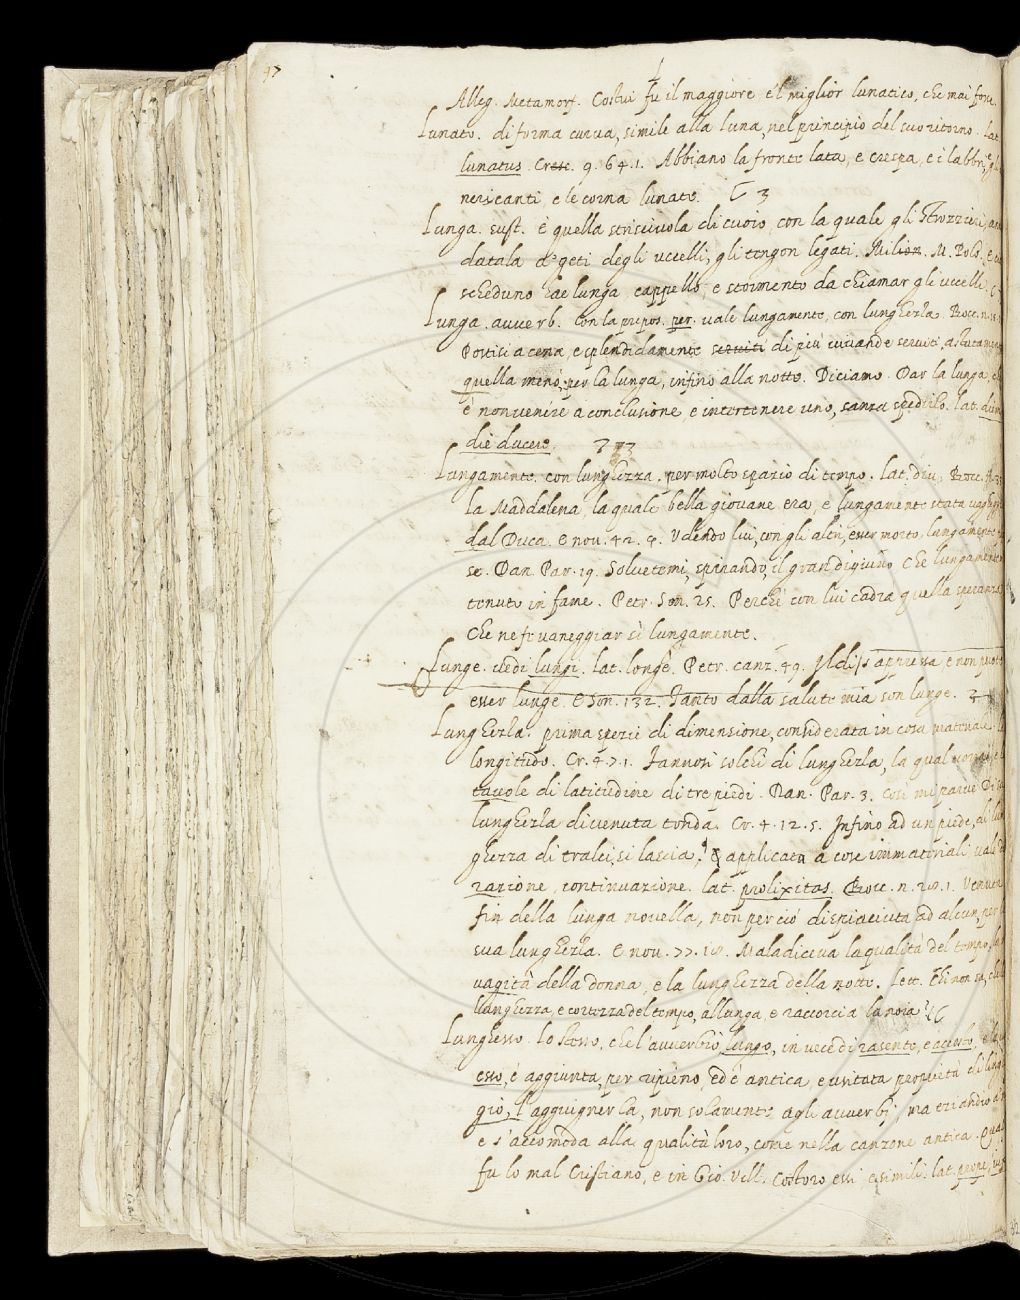 47
Alleg. Metamorf. Costui fu il maggiore e'l miglior lunatico, che mai fosse
Lunato. di forma curua, simile alla luna, nel principio del suo ritorno. Lat
lunatus. Cresc. 9. 64. 1. Abbiano la fronte lata, e crespa, e i labbri, e gli
neri canti, e le corna lunate.
Lunga. sust. è quella striscivola di cuoio, con la quale gli Strozzieri,
datala a' geti degli uccelli, gli tengon legati. Milion. M. Polo.
scheduno hae lunga, cappello, e stormento da chiamar gli uccelli.
Lunga. auuerb. con la prepos. per. vale lungamente, con lunghezza. Bocc. n.
Postisi a cena, e splendidamente seruiti di più viuande seruiti, astutamen
quella menò, per la lunga, infino alla notte. Diciamo. Dar la lunga,
è non venire a conclusione, e intertenere uno, sanza spedirlo. lat.
die ducere.
Lungamente. con lunghezza, per molto spazio di tempo. lat. diu. Bocc.
la Maddalena, la quale bella giouane era, e lungamente stata
dal Duca. E nou. 42. 4. Vdendo lui, con gli altri, esser morto, lungamente
se. Dan. Par. 19. Soluetemi, spirando, il gran digiuno Che lungamente
tenuto in fame. Petr. Son. 25. Perchè con lui cadrà quella speranza
Che ne fe vaneggiar sì lungamente.
Lunge. vedi lungi. lat. longe. Petr. canz. 49. Il dì s'appressa e non puote
esser lunge. E Son. 132. Tanto dalla salute mia son lunge.
Lunghezza. prima spezie di dimensione, considerata in cosa materiale
longitudo. Cr. 4. 7. 1. Fannosi solchi di lunghezza, la qual
tauole di latitudine di tre piedi. Dan. Par. 3. Così mi parue Di sua
lunghezza diuenuta tonda. Cr. 4. 12. 5. Infino ad un piede, di lun
ghezza di tralci, si lascia, applicata a cose immateriali vale
razione, continuazione. lat. prolixitas. Bocc. n. 20. 1. Venuta
fin della lunga nouella, non per ciò dispiaciuta ad alcun, per
sua lunghezza. E nou. 77. 10. Maladiceua la qualità del tempo, la
uagità della donna, e la lunghezza della notte. Lett. Chi non sa, che
lunghezza, e cortezza del tempo, allunga, e raccorcia la noia
Lunghesso. lo stesso, che l'auuerbio lungo, in vece di rasente, e accosto,
esso, è aggiunta, per ripieno, ed è antica, e usitata proprietà di ling
gio, l'aggiugnerla, non solamente agli auuerbj, ma eziandio
e s'accomoda alla qualità loro, come nella canzone antica. Qual
fu lo mal Cristiano, e in Gio. Vill. Costoro essi, e simili. lat. prope,